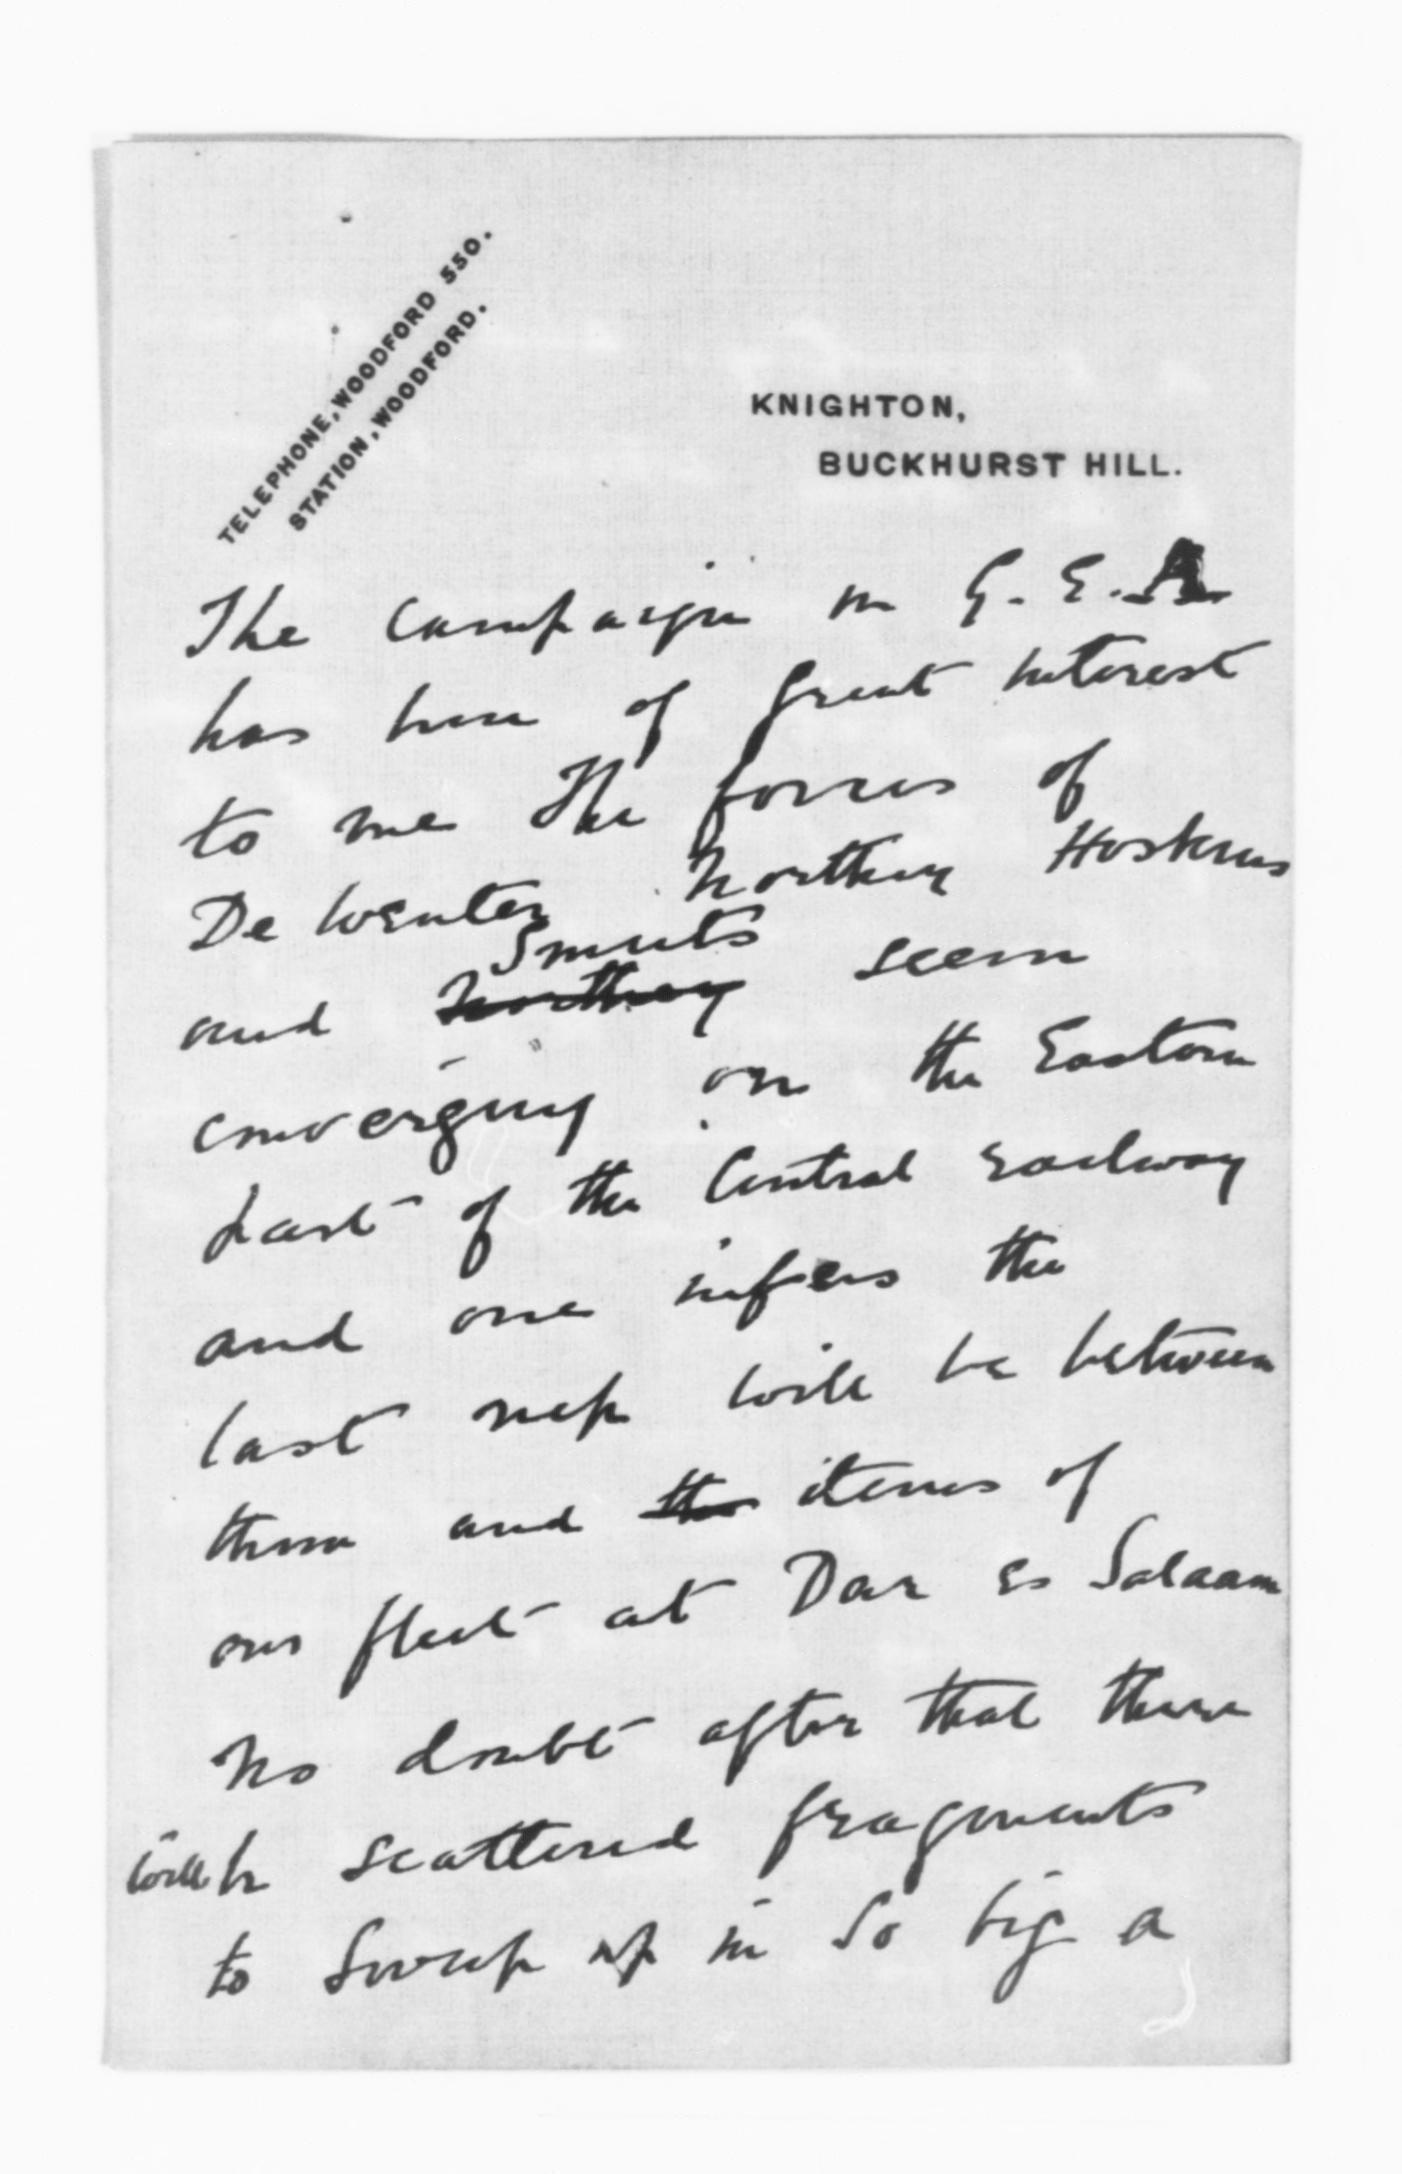 TELEPHONE, WOODFORD 550.
STATION, WOODFORD.
KNIGHTON,
BUCKHURST HILL.
The campaign in G. E. A
has been of great interest
to me The forces of
De Wenter Northey Hoskins
Smuts
and Northey seem
converging on the Eastern
part of the Central railway
and one infers the
last nip will be between
them and the items of
our fleet at Dar es Salaam
No doubt after that there
will be scattered fragments
to sweep up in so big a